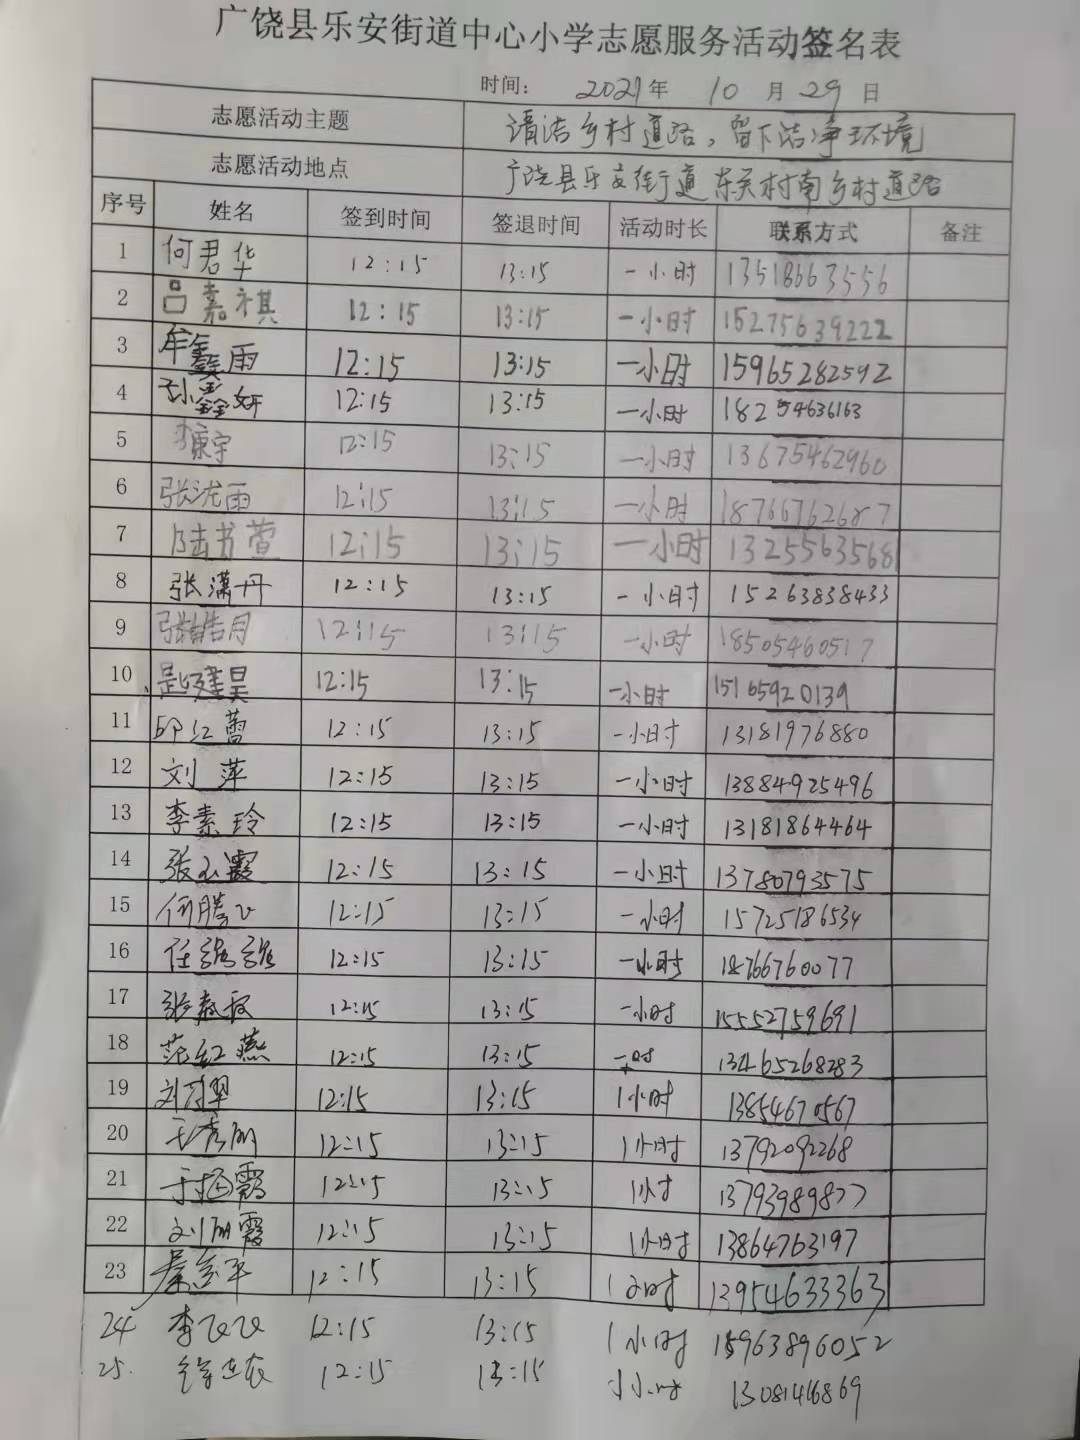 广饶县乐安街道中心小学志愿服务活动签名表
时间： 2021年 10 月 29 日
志愿活动主题 清洁乡村道路，留下洁净环境
志愿活动地点 广饶县乐安街道东关村南乡村道路
序号 姓名 签到时间 签退时间 活动时长 联系方式 备注
1 何君华 12:15 13:15 一小时 13518663556
2 吕嘉祺 12:15 13:15 一小时 15275639222
3 牟鑫雨 12:15 13:15 一小时 15965282592
4 孙鑫妍 12:15 13:15 一小时 18254636163
5 康宇 12:15 13:15 一小时 13675462960
6 张泷雨 12:15 13:15 一小时 18766762687
7 陆书萱 12:15 13:15 一小时 13255635681
8 张潇丹 12:15 13:15 一小时 15263838433
9 张皓月 12:15 13:15 一小时 18505460517
10 建昊 12:15 13:15 一小时 15165920139
11 邱红蕾 12:15 13:15 一小时 13181976880
12 刘萍 12:15 13:15 一小时 13884925496
13 李素玲 12:15 13:15 一小时 13181864464
14 张玉霞 12:15 13:15 一小时 13780793575
15 何腾飞 12:15 13:15 一小时 15725186534
16 任 12:15 13:15 一小时 18766760077
17 张 12:15 13:15 一小时 15552759691
18 范红燕 12:15 13:15 一时 13465268283
19 刘翠 12:15 13:15 1小时 13854670567
20 王秀丽 12:15 13:15 1小时 13792092268
21 于 霞 12:15 13:15 1小时 13793989877
22 刘丽霞 12:15 13:15 1小时 13864763197
23 秦 平 12:15 13:15 1小时 13954633363
24 李飞飞 12:15 13:15 1小时 15963896052
25. 12:15 13:15 小时 13081446869